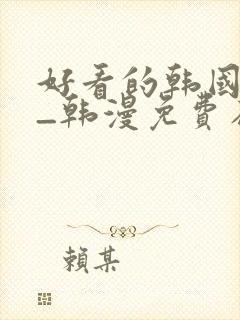 好看的韩国
–韩漫免费
賴某